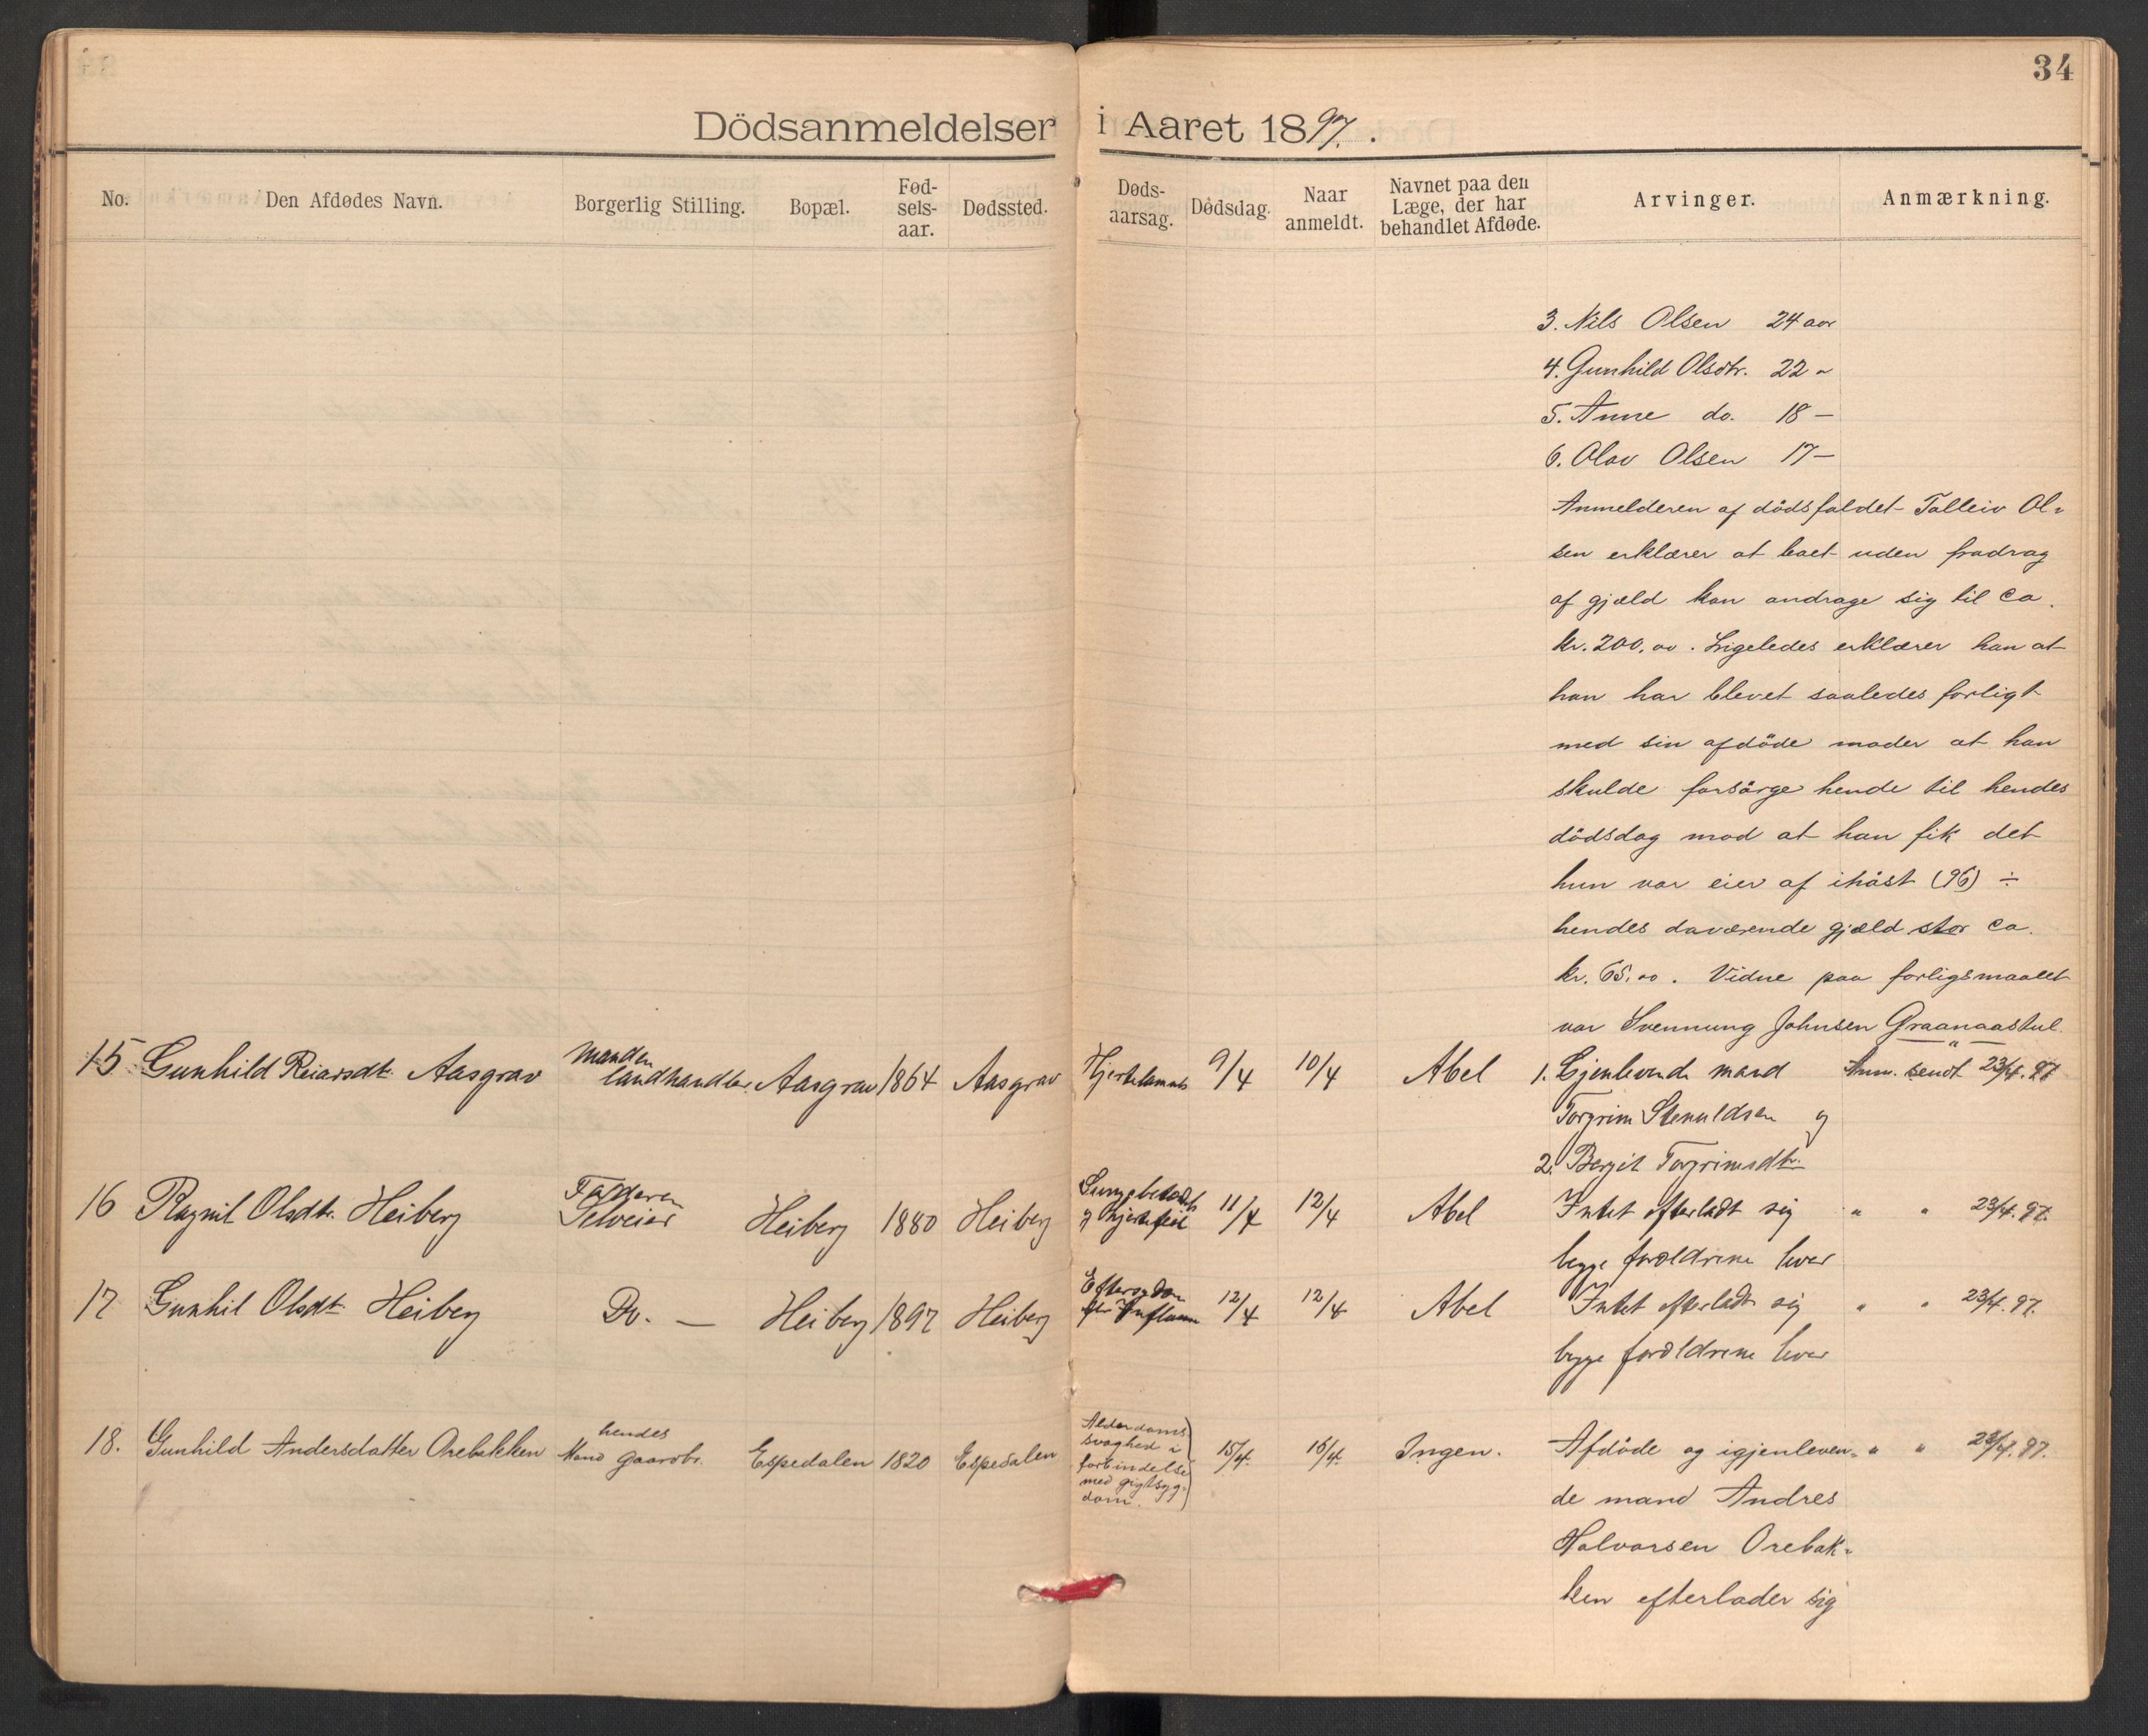 34
Dödsanmeldelser i Aaret 1897.
No. Den Afdødes Navn. Borgerlig Stilling. Bopæl. Fød-sels-aar. Dødssted. Døds-aarsag. Dødsdag. Naar anmeldt. Navnet paa den Læge, der har behandlet Afdøde. Arvinger. Anmærkning.
3. Nils Olsen 24 aar
4. Gunhild Olsdtr. 22 "
5. Anne do. 18 —
6. Olav Olsen 17 —
Anmelderen af dödsfaldet Talleiv Ol-
sen erklærer at boet uden fradrag
af gjæld kan andrage sig til ca.
kr. 200,00. Ligeledes erklærer han at
han har blevet saaledes forligt
med sin afdöde moder at han
skulde forsörge hende til hendes
dödsdag mod at han fik det
hun var eier af ihöst (96) ÷
hendes daværende gjæld stor ca.
kr. 65,00. Vidne paa forligsmaalet
var Svennung Johnsen Graanaastul.
15 Gunhild Reiarsdt. Aasgrav Manden landhandler. Aasgrav 1864 Aasgrav 9/4 10/4 Abel 1. Gjenlevende mand Anm. sendt 23/4. 97
Torgrim Stenuldsen og
2. Bergit Torgrimsdtr.
16 Ragnil Olsdtr. Heiberg Faderen Selveier Heiberg 1880 Heiberg Lungebetændt og hjertefeil 11/4 12/4 Abel Intet efterladt sig " " 23/4. 97.
begge forældrene lever
17 Gunhil Olsdt. Heiberg Do. — Heiberg 1897 Heiberg 12/4 12/4 Abel Intet efterladt sig " " 23/4. 97.
begge forældrene lever
18. Gunhild Andersdatter Orebakken hendes Mand gaardbr. Espedalen 1820 Espedalen Alderdoms svaghed i forbindelse med gigtsyg-dom. 15/4. 16/4. Ingen. Afdöde og igjenleven- " " 23/4. 97.
de mand Andres
Halvorsen Orebak-
ken efterlader sig